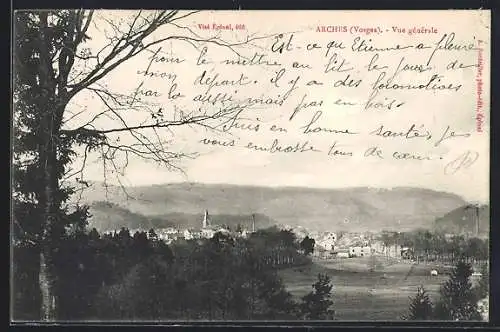 Visé Épinal, 406
ARCHES (Vosges). - Vue générale
Est-ce qu'Etienne a pleuré
pour le mettre au lit le jour de
mon départ. Il y a des locomotives
par là aussi mais pas en bois.
Suis en bonne santé, je
vous embrasse tous de cœur.